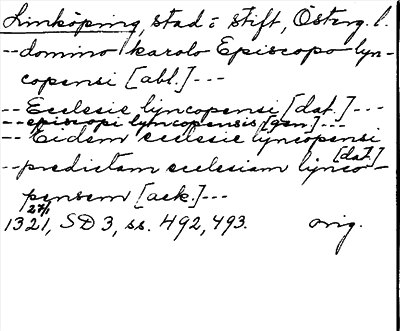 Linköping, stad o stift, Österg. l.
-- domino karolo Episcopo lyn-
copensi [abl.] ---
-- Ecclesie lyncopensi [dat.] ---
-- episcopi lyncopensis [gen] ---
-- Eidem ecclesie lyncopensi [dat] --
-- predictam ecclesiam lynco-
pensem [ack.] ---
1321 27/1, SD 3, ss. 492, 493. orig.